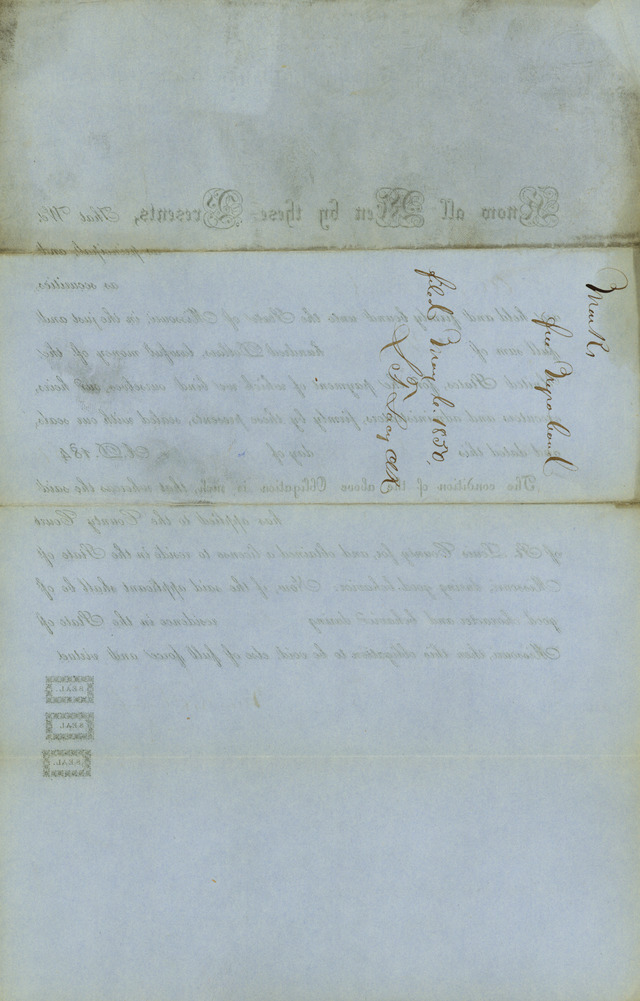 free Negro bond
filed May 6. 1850,
Know all Men by these Presents, That We
principals, and
as securities
held and firmly bound unto the State of Missouri, in the just and
full sum of hundred Dollars, lawful money of the
United States, for the payment of which we bind ourselves, our heirs,
executors and administrators, firmly by these presents, sealed with our seals,
and dated this day of A.D. 184
The condition of the above Obligation is such, that whereas the said
has applied to the County Court
of St. Louis County for, and obtained a license to reside in the State of
Missouri, during good behavior. Now, if the said applicant shall be of
good character and behavior during residence in the State of
Missouri, then this obligation to be void, else of full force and virtue.
SEAL.
SEAL.
SEAL.